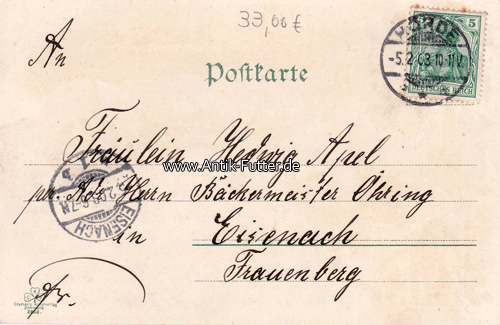 33,00 €
An
Postkarte
HÖRDE
-5.2.03.10-11V.
5
DEUTSCHES REICH
Fräulein Hedwig Apel
www.Antik-Futter.de
pr. Adr. Herrn Bäckermeister Öhring
in Eisenach
Frauenberg
EISENACH
fr.